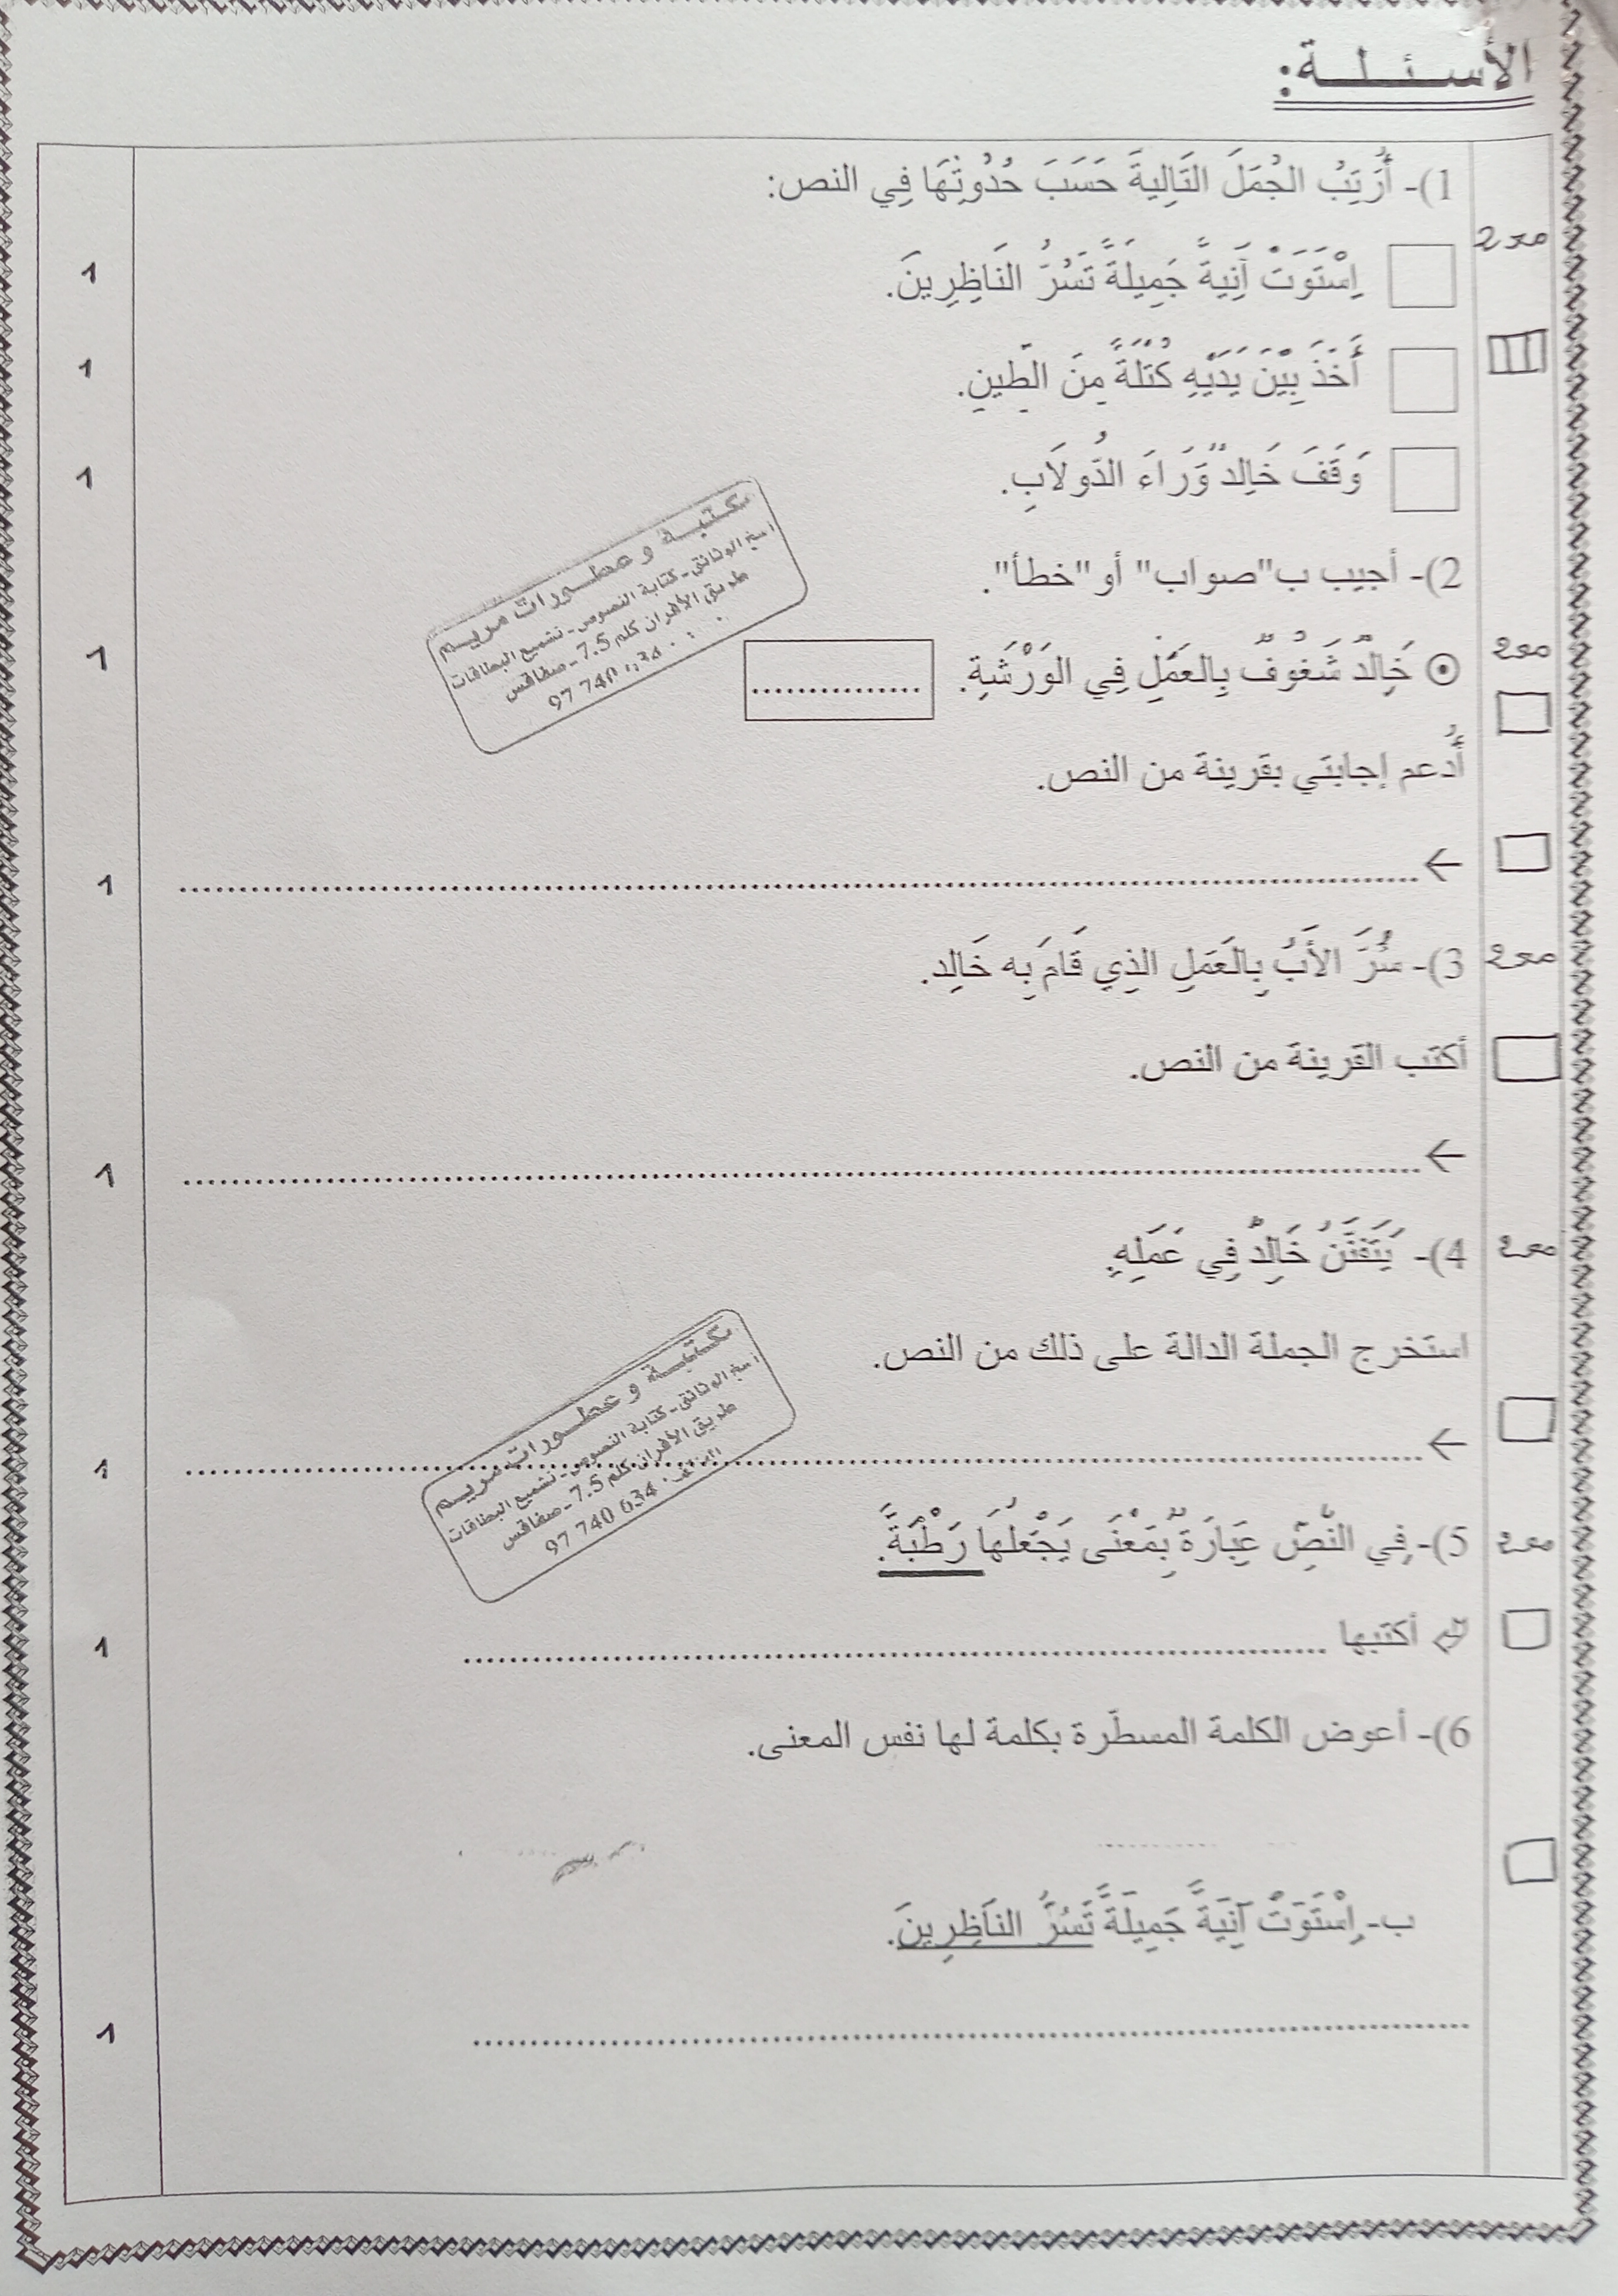 الأسئلة:
1)- أُرَتِبُ الجُمَلَ التَالِيةَ حَسَبَ حُدُوثِهَا فِي النص:
مع2
اِسْتَوَتْ آنِيةً جَمِيلَةً تَسُرُّ النَاظِرِينَ.
1
أَخَذَ بَيْنَ يَدَيْهِ كُتْلَةً مِنَ الطِّينِ.
1
وَقَفَ خَالِدٌ وَرَاءَ الدُّولاَبِ.
1
2)- أجيب ب"صواب" أو "خطأ".
مع2
خَالِدٌ شَغُوفٌ بِالعَمَلِ فِي الوَرْشَةِ. ...............
1
أُدعم إجابتي بقرينة من النص.
←
1
3)- سُرَّ الأَبُ بِالعَمَلِ الذِي قَامَ بِه خَالِد.
مع2
أكتب القرينة من النص.
←
1
4)- يَتَفَنَّنُ خَالِدٌ فِي عَمَلِهِ.
مع2
استخرج الجملة الدالة على ذلك من النص.
←
1
5)- فِي النَّصِّ عِبَارَةٌ بِمَعْنَى يَجْعَلُهَا رَطْبَةً.
مع2
أكتبها
1
6)- أعوض الكلمة المسطّرة بكلمة لها نفس المعنى.
ب- اِسْتَوَتْ آنِيَةً جَمِيلَةً تَسُرُّ النَاظِرِينَ.
1
مكتبة وعطورات مريم
نسخ الوثائق - كتابة النصوص - تشميع البطاقات
طريق الأفران كلم 7.5 - صفاقس
97 740 634
مكتبة وعطورات مريم
نسخ الوثائق - كتابة النصوص - تشميع البطاقات
طريق الأفران كلم 7.5 - صفاقس
الهاتف: 97 740 634